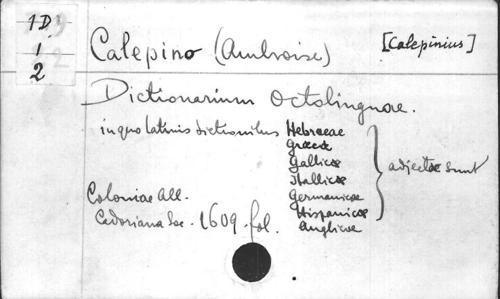 1D.
1
2
Calepino (Ambroise) [Calepinius]
Dictionarium Octolinguae.
in quo latinis dictionibus Hebraeae
Graecæ
Gallicæ
Itallicæ
Germanicæ
Hispanicæ
Anglicæ
adjectæ sunt
Coloniae All.
Cadoriana Soc. 1609. fol.